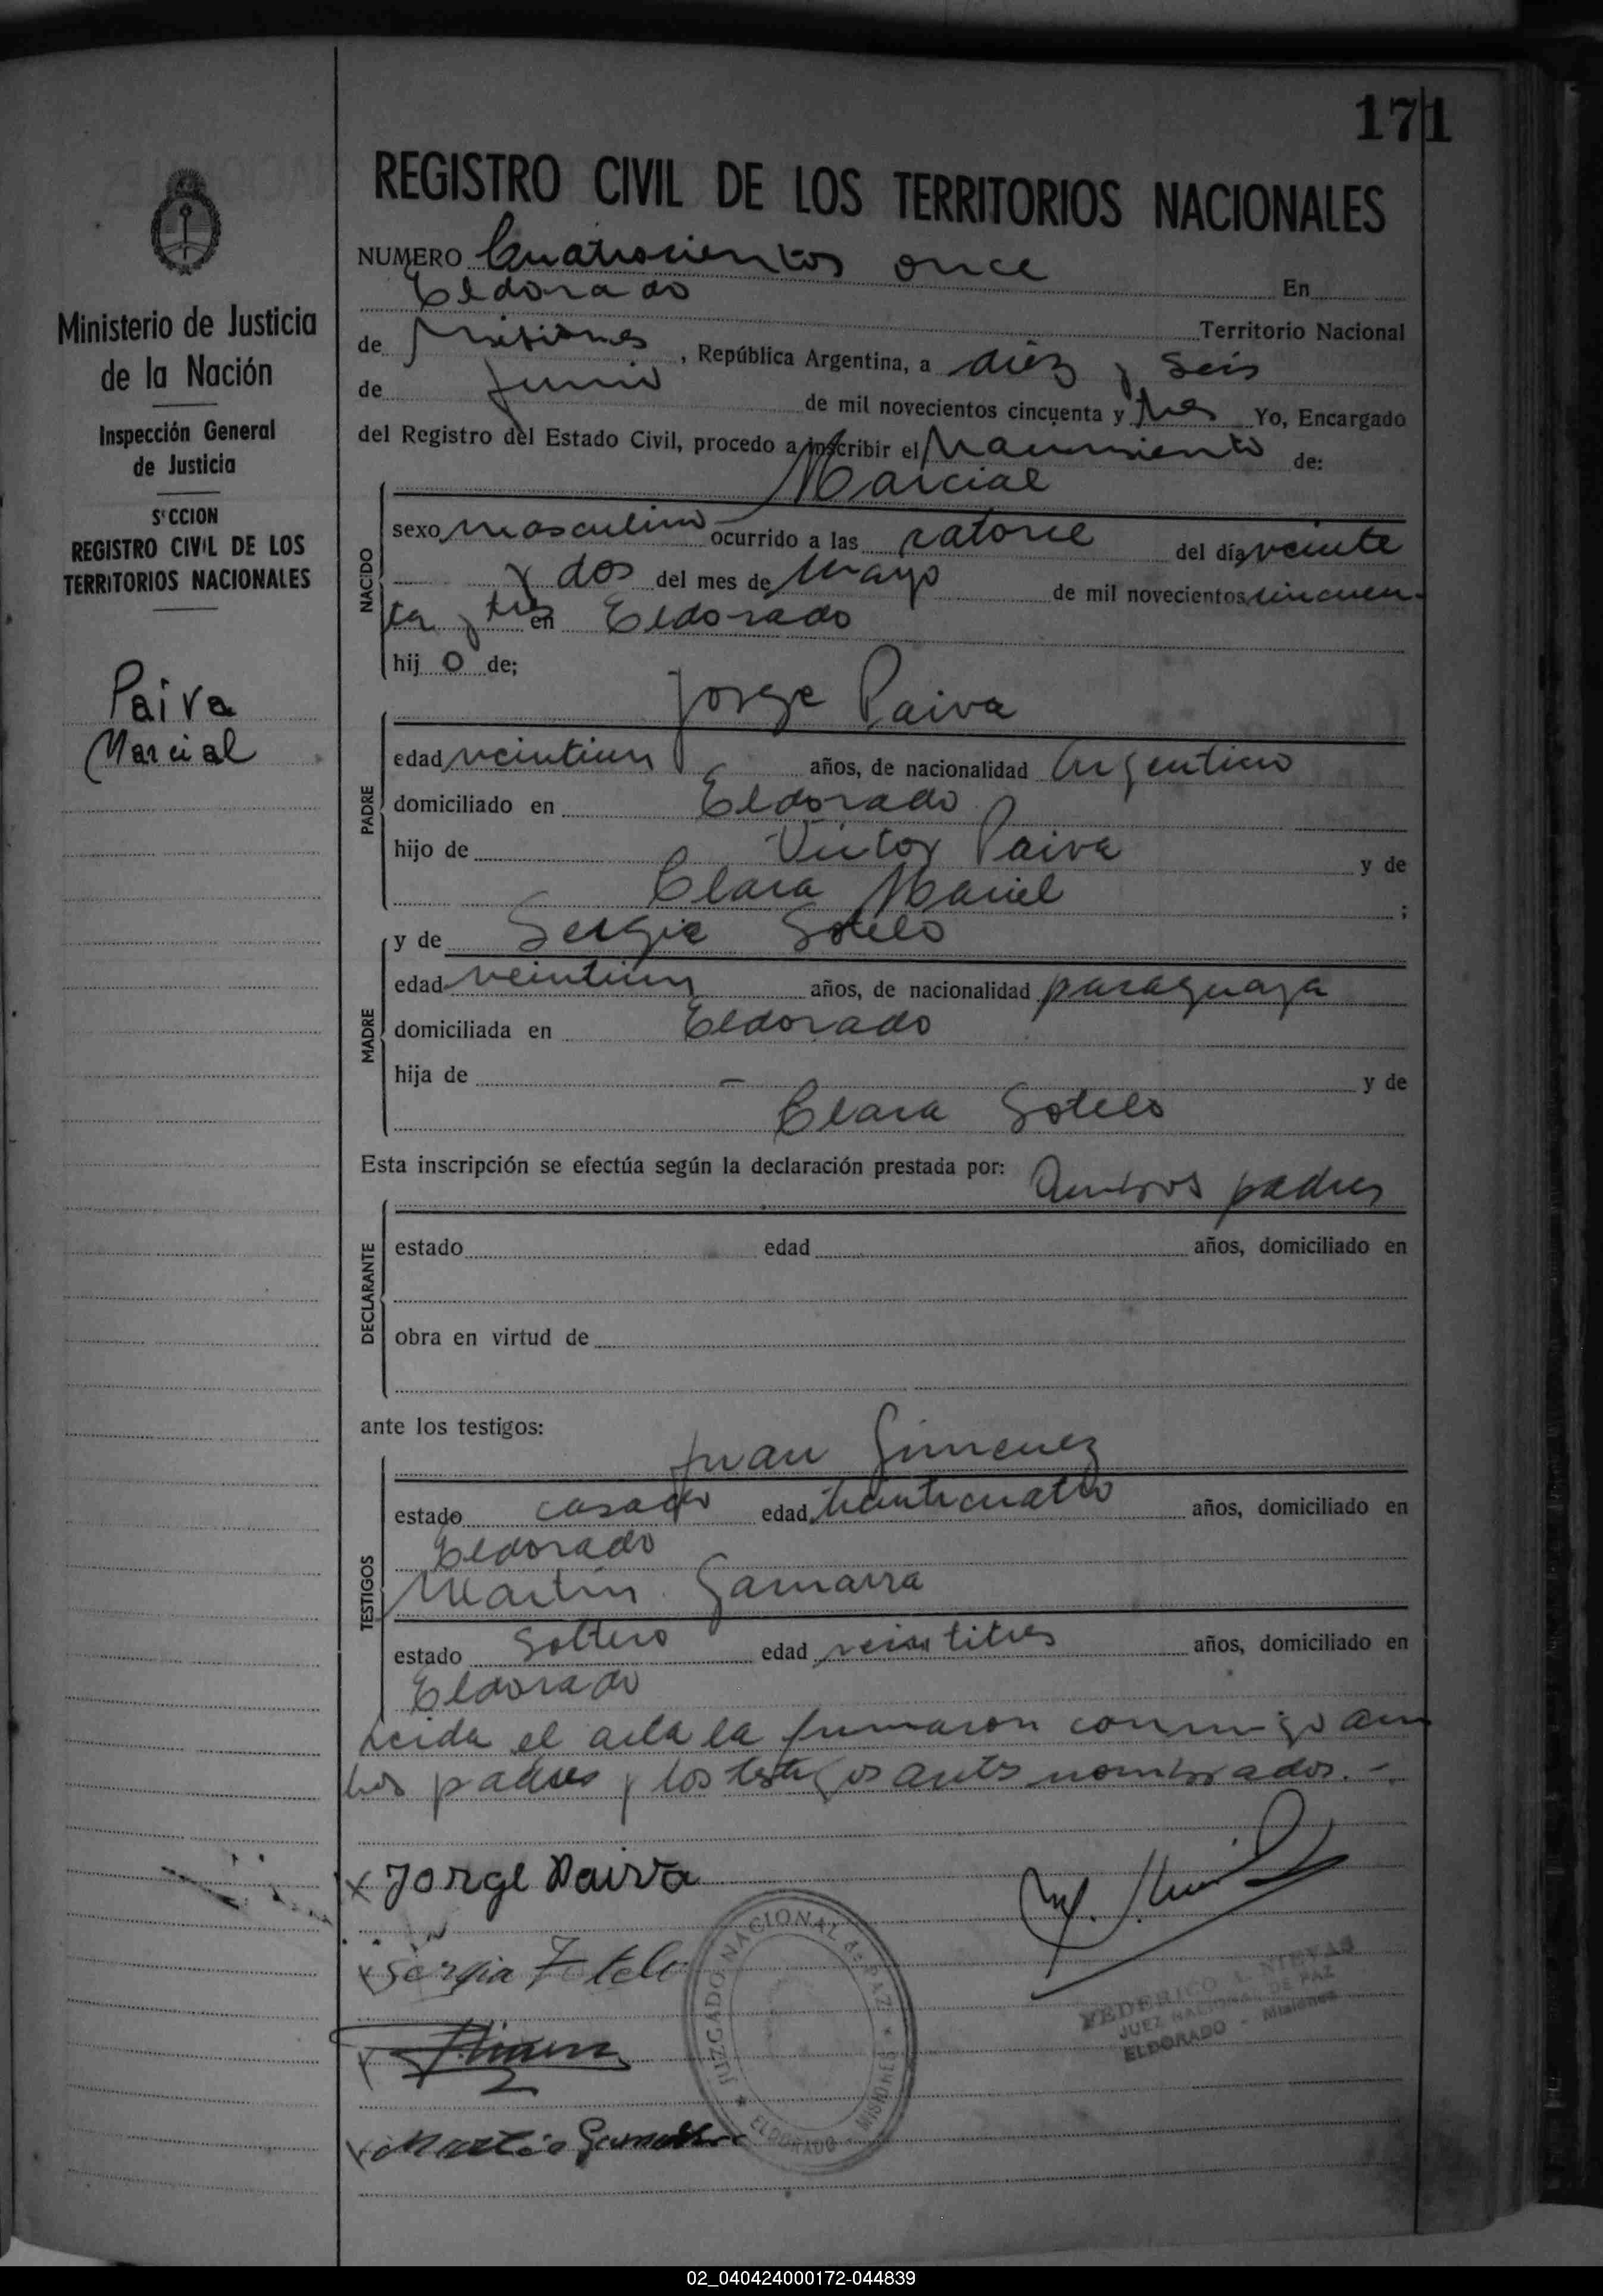 171
REGISTRO CIVIL DE LOS TERRITORIOS NACIONALES
Ministerio de Justicia
de la Nación
Inspección General
de Justicia
S'CCION
REGISTRO CIVIL DE LOS
TERRITORIOS NACIONALES
Paiva
Marcial
NUMERO Cuatrocientos once
Eldorado En
Territorio Nacional
de Misiones, República Argentina, a diez y seis
de Junio de mil novecientos cincuenta y tres Yo, Encargado
del Registro del Estado Civil, procedo a inscribir el Nacimiento de:
Marcial
NACIDO
sexo masculino ocurrido a las catorce del día veinte
y dos del mes de Mayo de mil novecientos cincuen-
ta y tres en Eldorado
hij o de;
Jorge Paiva
PADRE
edad veintiun años, de nacionalidad Argentino
domiciliado en Eldorado
hijo de Victor Paiva y de
Clara Maciel ;
y de Sergia Sotelo
MADRE
edad veintiun años, de nacionalidad paraguaya
domiciliada en Eldorado
hija de — y de
Clara Sotelo
Esta inscripción se efectúa según la declaración prestada por: Ambos padres
DECLARANTE
estado edad años, domiciliado en
obra en virtud de
ante los testigos:
Juan Gimenez
TESTIGOS
estado casado edad treinticuatro años, domiciliado en
Eldorado
Martin Gamarra
estado soltero edad veintitres años, domiciliado en
Eldorado
Leida el acta la firmaron conmigo am
bos padres y los testigos antes nombrados.-
x Jorge Paiva
x Sergia Sotelo
x Martin Gamarra
JUZGADO NACIONAL de PAZ
ELDORADO - MISIONES
FEDERICO A. NIEVAS
JUEZ NACIONAL DE PAZ
ELDORADO - Misiones
02_040424000172-044839